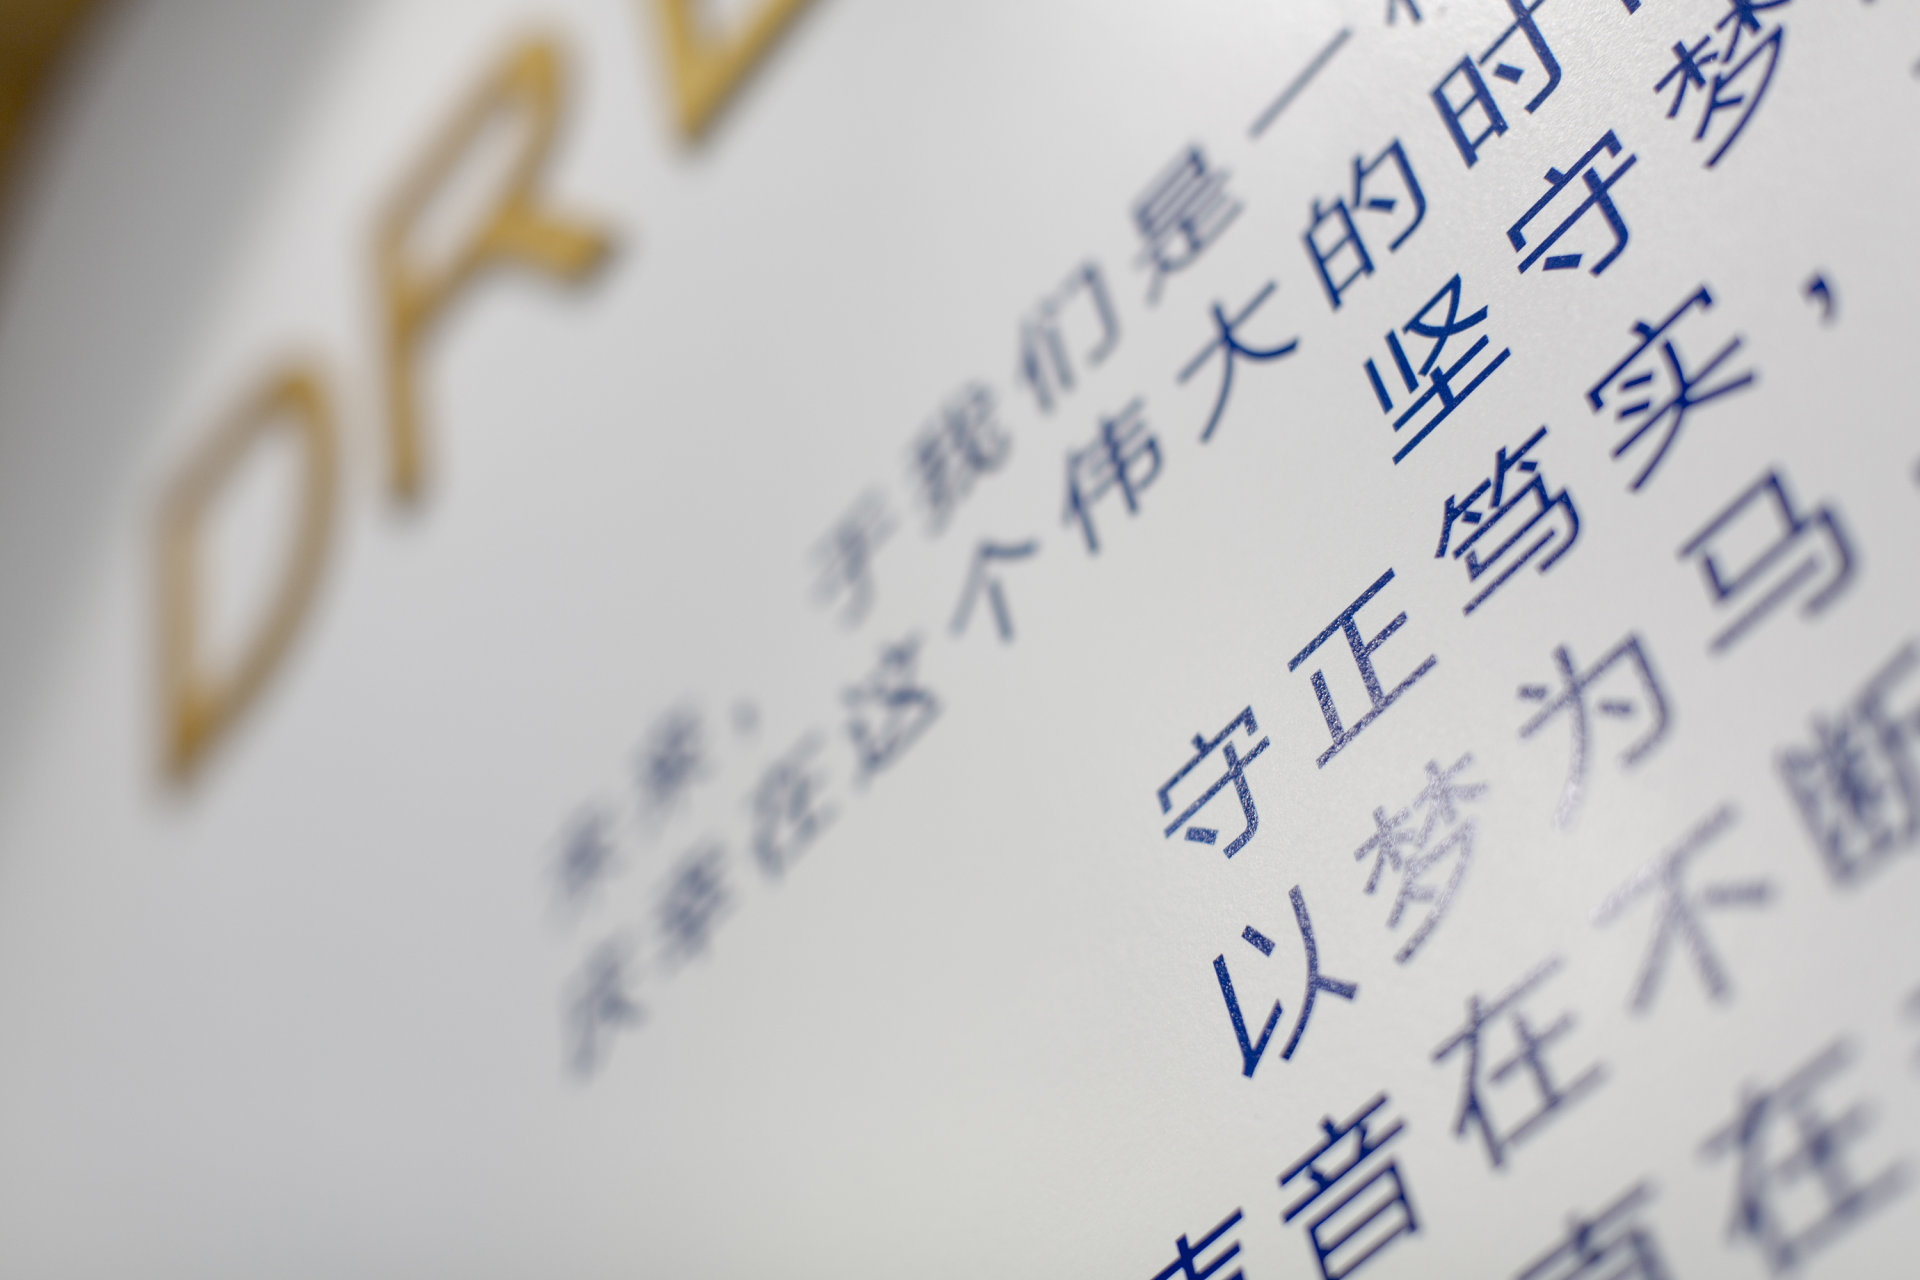 DR
未来，于我们是一
庆幸在这个伟大的时
坚守梦
守正笃实，
以梦为马
音在不断
在